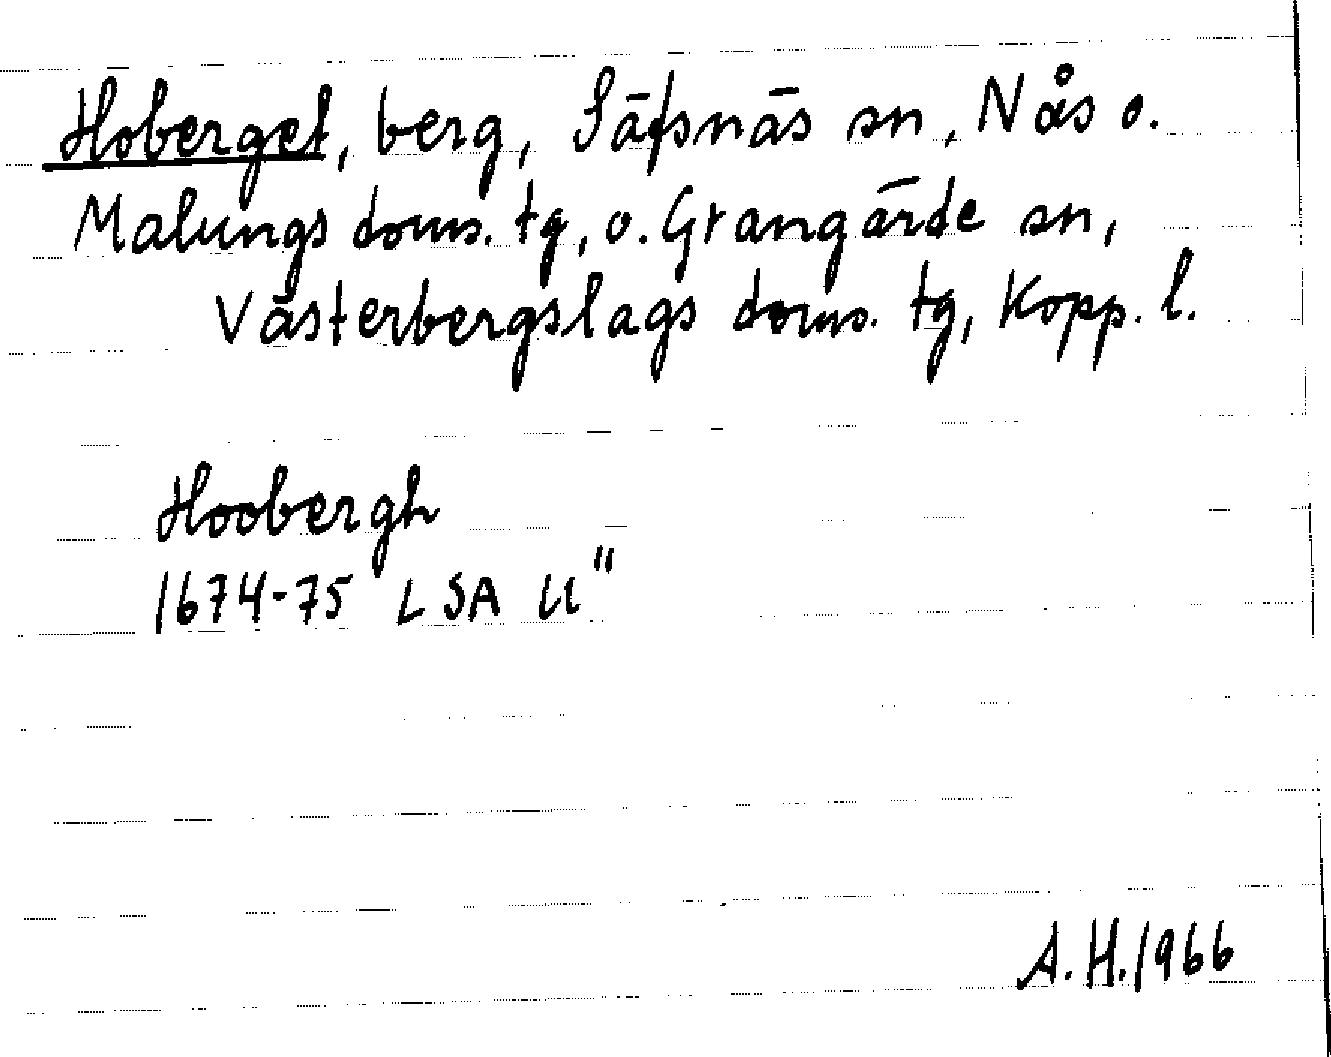 Hoberget, berg, Säfsnäs sn, Nås o.
Malungs doms. tg, o. Grangärde sn,
Västerbergslags doms. tg, Kopp. l.
Hoobergh
1674-75 LSA U"
A.H. 1966